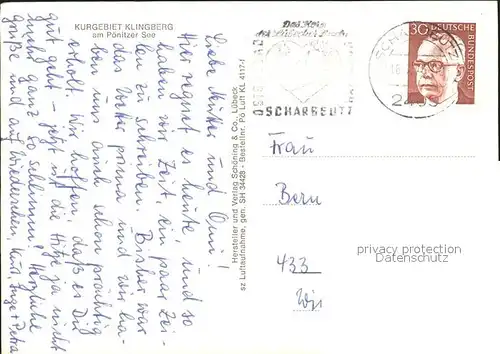 KURGEBIET KLINGBERG
am Pönitzer See
Liebe Mutter und Omi!
Hier regnet es heute, und so
haben wir Zeit, ein paar Zei-
len zu schreiben. Bisher war
das Wetter prima und wir ha-
ben uns auch schon prächtig
erholt. Wir hoffen, daß es Dir
gut geht – jetzt ist die Hitze ja nicht
mehr ganz so schlimm! Herzliche
Grüße und auf Wiedersehen Kurt, Inge + Petra
Hersteller und Verlag Schöning & Co., Lübeck
sz Luftaufnahme, gen. SH 34428 - Bestellnr. Pö Luft KL 4117-1
Das Herz
der Lübecker Bucht
OSTSEEBAD
SCHARBEUTZ
SCHARBEUTZ
30 DEUTSCHE
BUNDESPOST
Frau
Bern
433
privacy protection